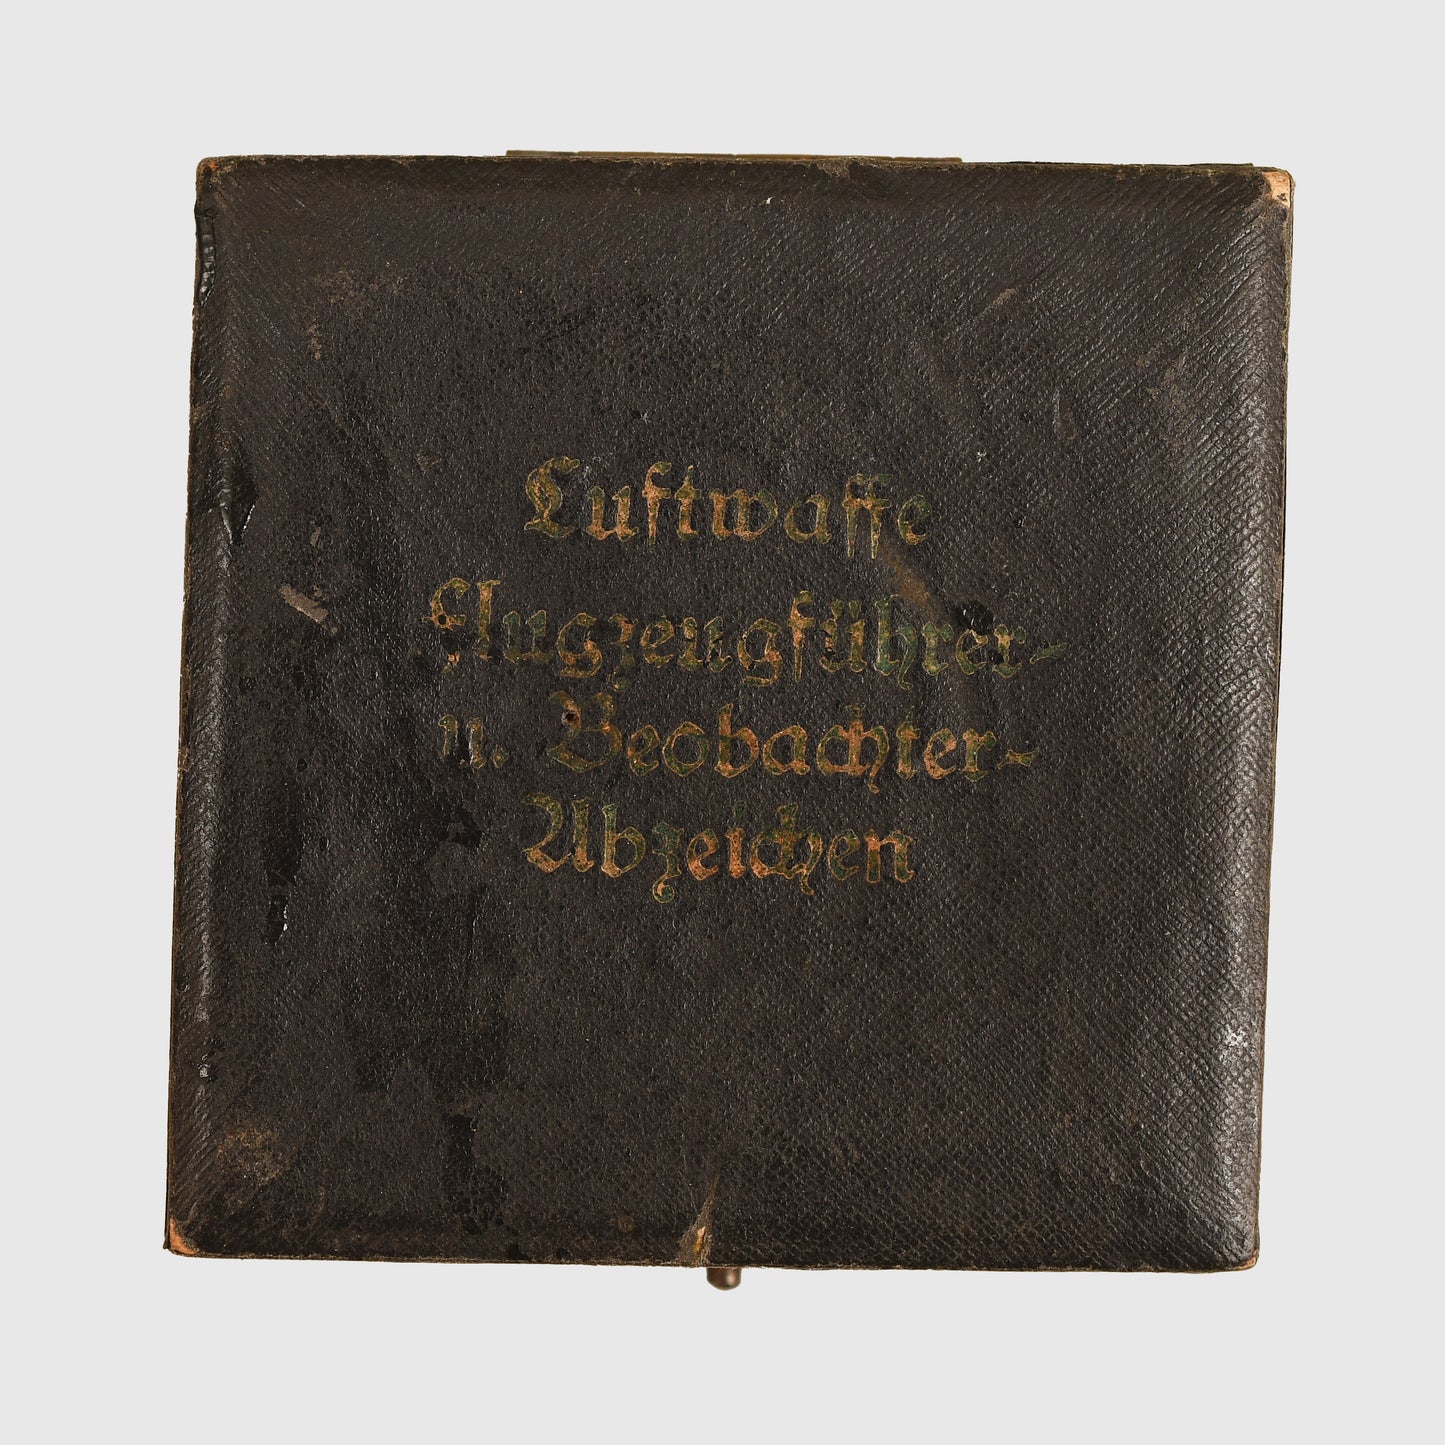 Luftwaffe
Flugzeugführer-
u. Beobachter-
Abzeichen